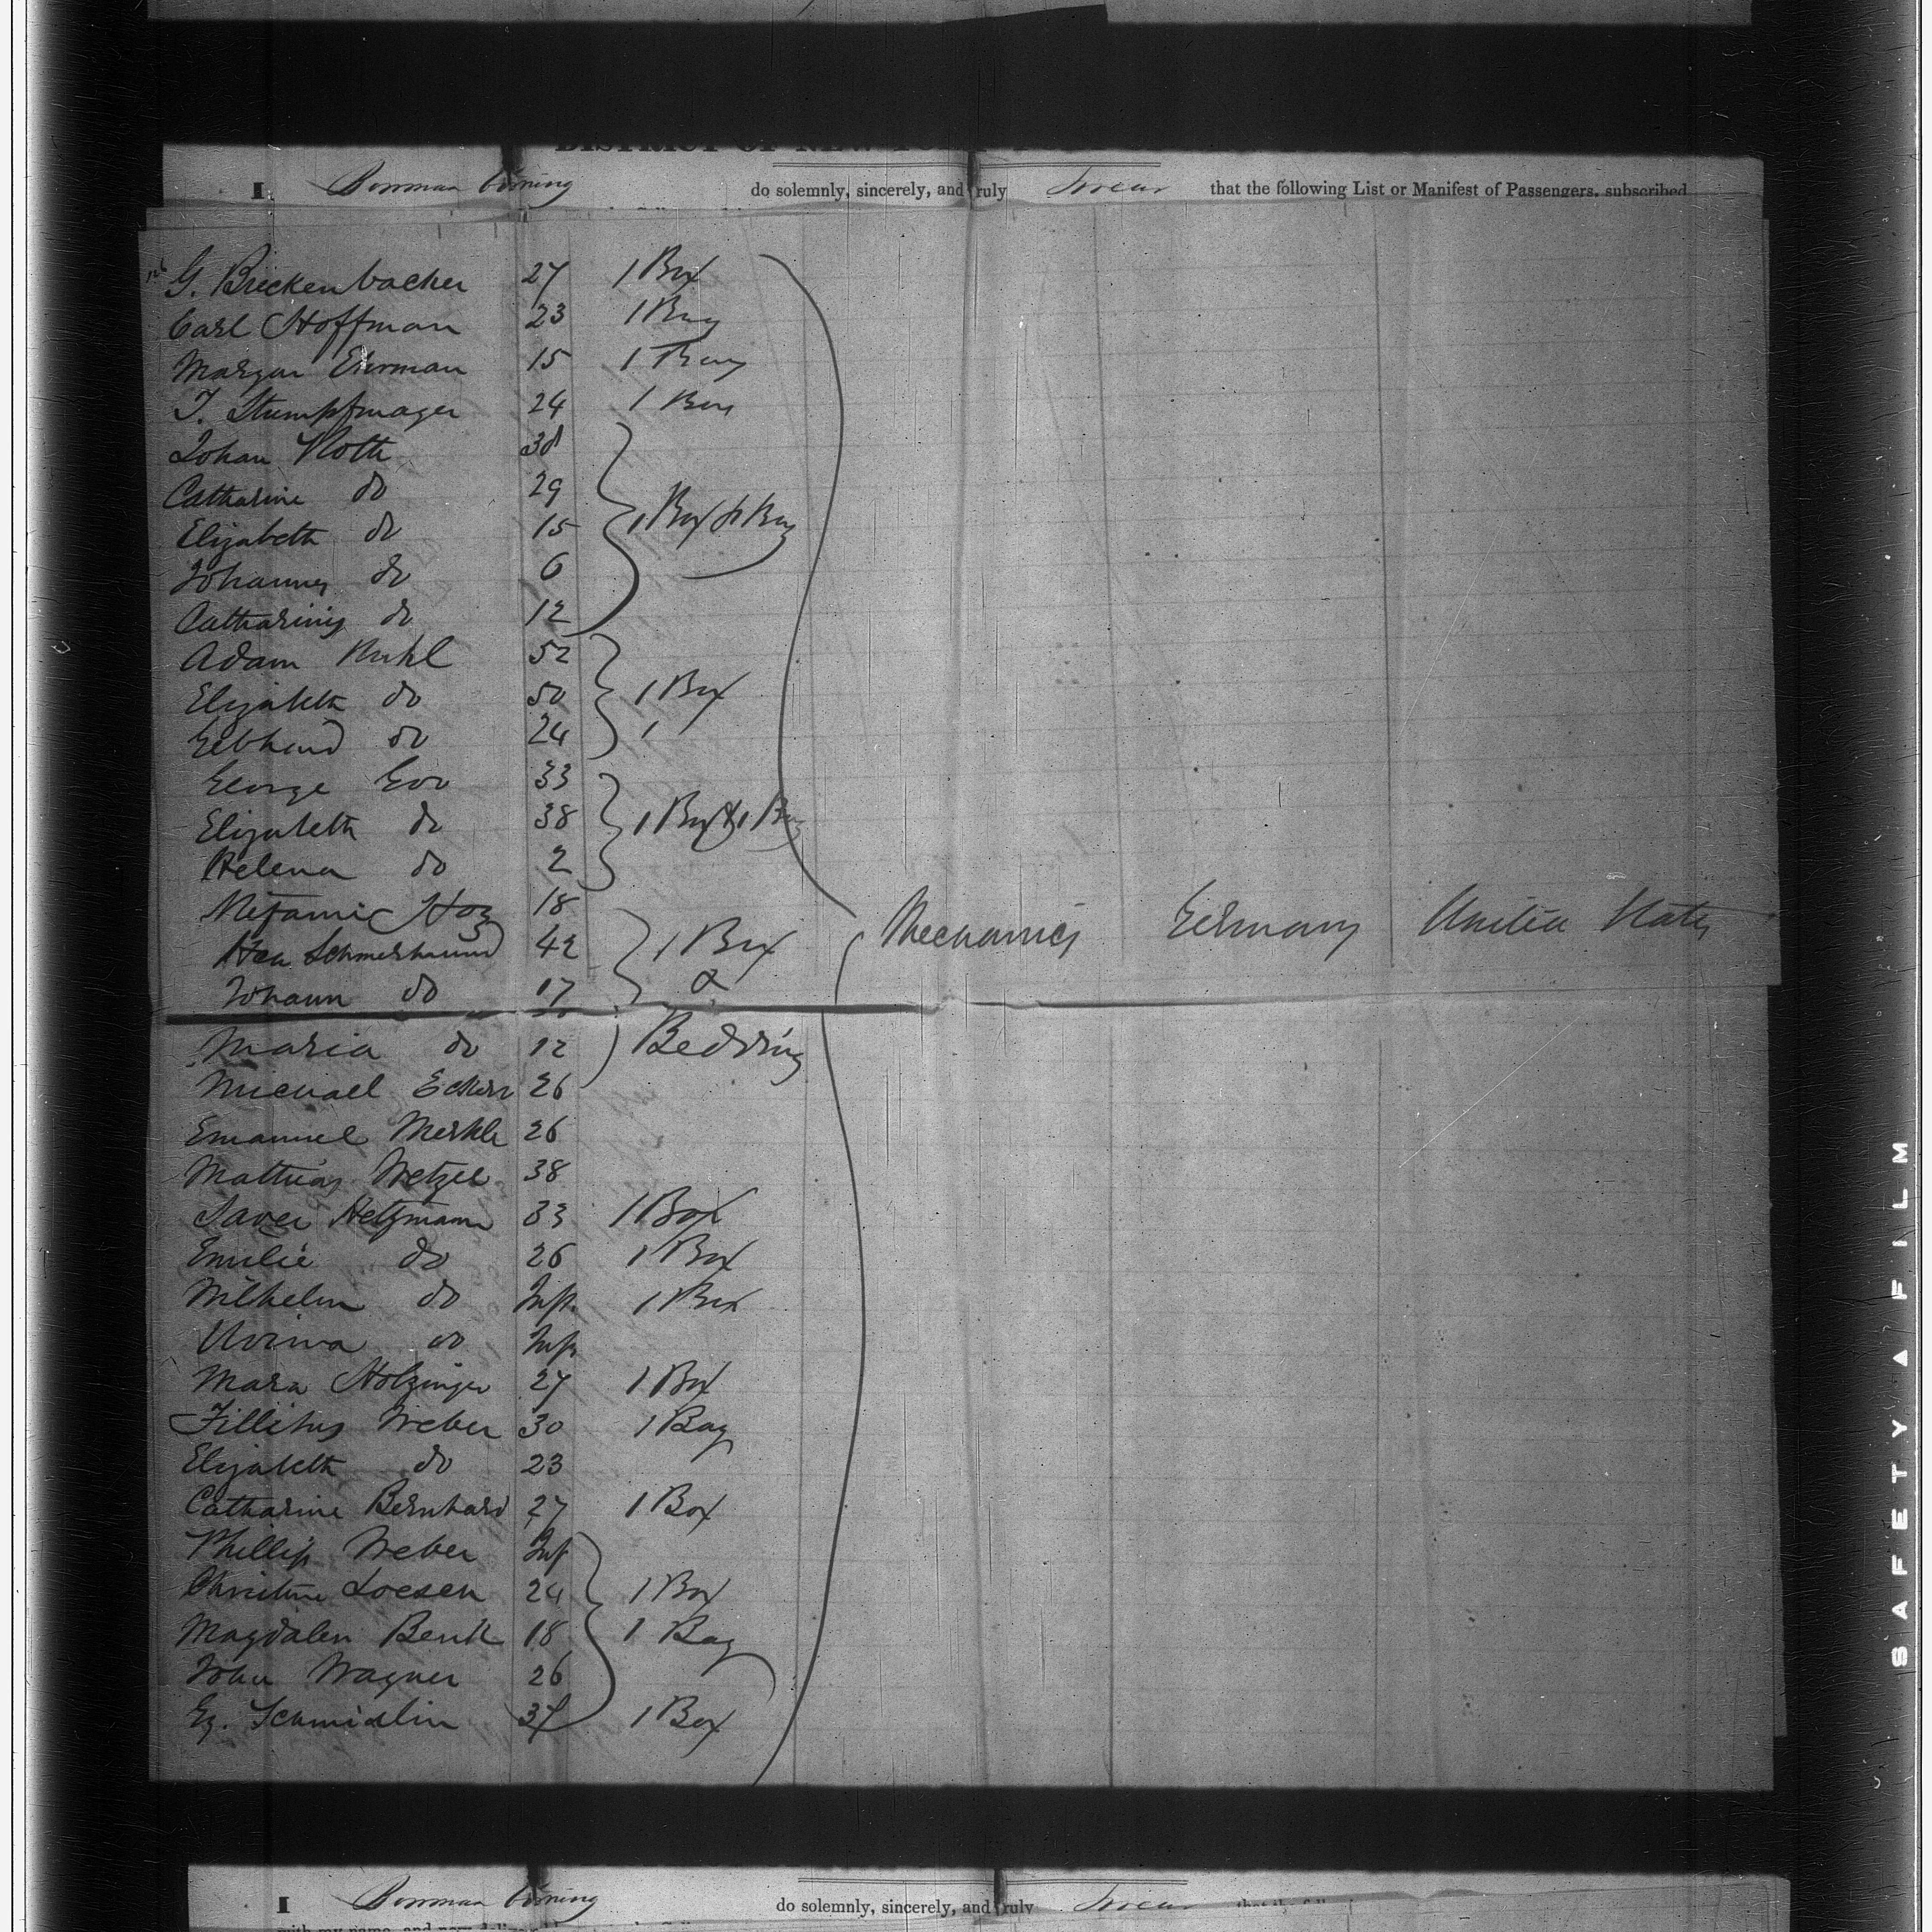 DISTRICT OF NEW YORK
I, Bowman Corning do solemnly, sincerely, and truly Swear that the following List or Manifest of Passengers, subscribed
G. Brickenbacher 27 1 Box
Carl Hoffman 23 1 Bag
Margar Ehrman 15 1 Bag
J. Stumpfmayer 24 1 Box
Johan Noth 38
Catharine do 29
Elizabeth do 15 1 Box & 1 Bag
Johannes do 6
Catharina do 12
Adam Ruhl 52
Elizabeth do 50 1 Box
Gebhard do 24 1
George 33
Elizabeth do 38 1 Box & 1 Bag
Helena do 2
18
42 1 Box Mechanics Germany United States
Johann do 17 &
Maria do 12 Bedding
Michael 26
Emanuel Merkle 26
Mathias Wetzel 38
Saver Hetzmann 33 1 Box
Emilie do 26 1 Box
Wilhelm do Inf. 1 Box
do Inf.
Mara Holzinger 27 1 Box
Weber 30 1 Bag
Elizabeth do 23
Catharine Bernhard 27 1 Box
Phillip Weber Inf
Christine Loesen 24 1 Box
Magdalen Benk 18 1 Bag
John Wagner 26
Schmidlin 37 1 Box
SAFETY FILM
I Bowman Corning do solemnly, sincerely, and truly Swear